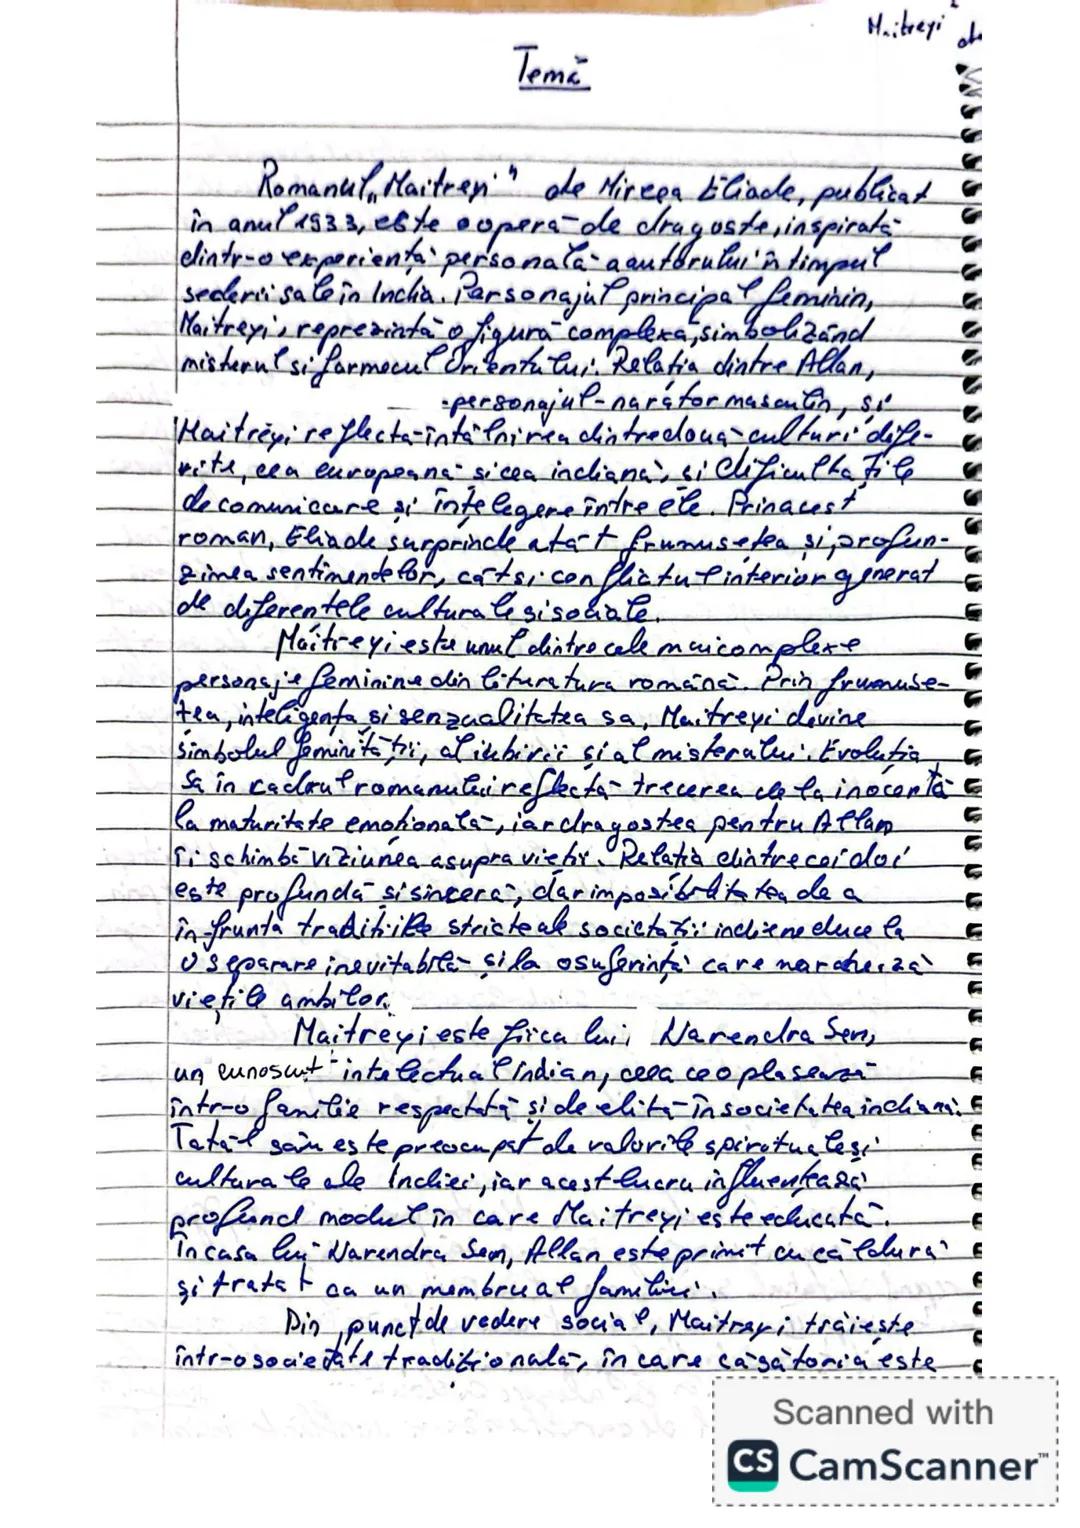 Maitreyi
de
Temă
Romanul „Maitreyi" de Mircea Eliade, publicat
în anul 1933, este o operă de dragoste, inspirată
dintr-o experiență personală a autorului în timpul
sederii sale în India. Personajul principal feminin,
Maitreyi, reprezintă o figură complexă, simbolizând
misterul si farmecul Orientului. Relația dintre Allan,
personajul-narator masculin, și
Maitreyi reflectă întâlnirea dintre două culturi dife-
rite, cea europeană si cea indiană, și dificultățile
de comunicare și înțelegere între ele. Prin acest
roman, Eliade surprinde atât frumusețea și profun-
zimea sentimentelor, cât și conflictul interior generat
de diferentele culturale si sociale.
Maitreyi este unul dintre cele mai complexe
personaje feminine din literatura română. Prin frumuse-
tea, inteligența si senzualitatea sa, Maitreyi devine
simbolul feminității, al iubirii și al misterului. Evoluția
sa în cadrul romanului reflectă trecerea de la inocență
la maturitate emotională, iar dragostea pentru Allan
îi schimbă viziunea asupra vieții. Relația dintre cei doi
este profundă si sinceră, dar imposibilitatea de a
înfrunta tradițiile stricte ale societății indiene duce la
o separare inevitabilă și la o suferință care marchează
viețile ambilor.
Maitreyi este fiica lui Narendra Sen,
un cunoscut intelectual indian, ceea ce o plasează
într-o familie respectată și de elită în societatea indiană.
Tatăl său este preocupat de valorile spirituale și
culturale ale Indiei, iar acest lucru influențează
profund modul în care Maitreyi este educată.
În casa lui Narendra Sen, Allan este primit cu căldură
și tratat ca un membru al familiei.
Din punct de vedere social, Maitreyi trăiește
într-o societate tradițională, în care căsătoria este
Scanned with
CS CamScanner™